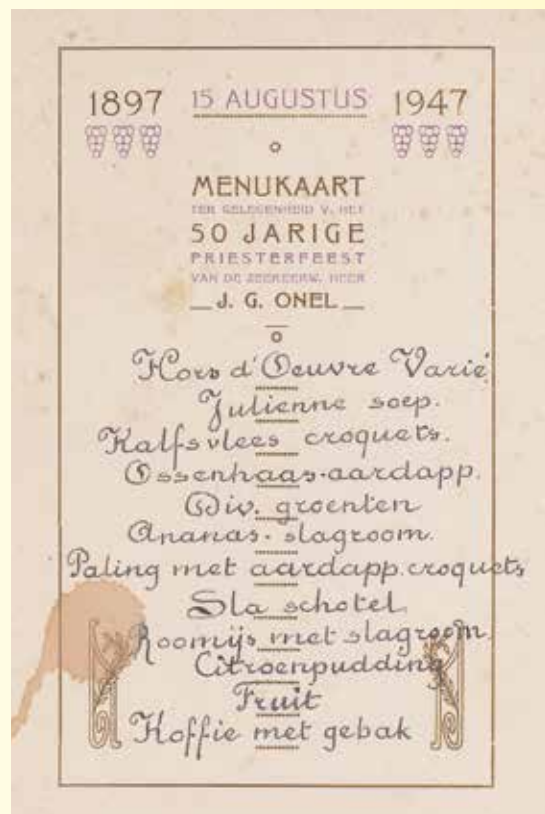 1897 15 AUGUSTUS 1947
MENUKAART
TER GELEGENHEID V. HET
50 JARIGE
PRIESTERFEEST
VAN DE ZEEREERW. HEER
J. G. ONEL
Hors d'Oeuvre Varié
Julienne soep.
Kalfsvlees croquets.
Ossenhaas-aardapp.
Div. groenten
Ananas-slagroom.
Paling met aardapp. croquets
Sla schotel
Roomijs met slagroom.
Citroenpudding
Fruit
Koffie met gebak